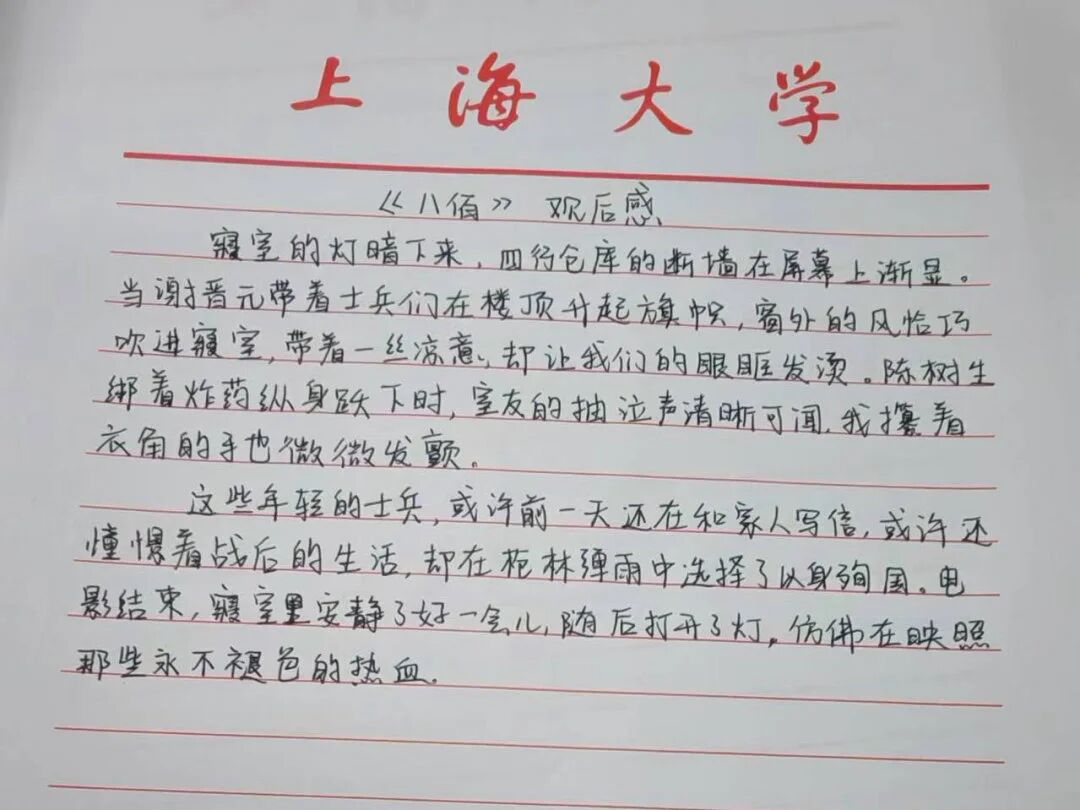 上海大学
《八佰》 观后感
寝室的灯暗下来，四行仓库的断墙在屏幕上渐显。
当谢晋元带着士兵们在楼顶升起旗帜，窗外的风恰巧
吹进寝室，带着一丝凉意，却让我们的眼眶发烫。陈树生
绑着炸药纵身跃下时，室友的抽泣声清晰可闻，我攥着
衣角的手也微微发颤。
这些年轻的士兵，或许前一天还在和家人写信，或许还
憧憬着战后的生活，却在枪林弹雨中选择了以身殉国。电
影结束，寝室里安静了好一会儿，随后打开了灯，仿佛在映照
那些永不褪色的热血。